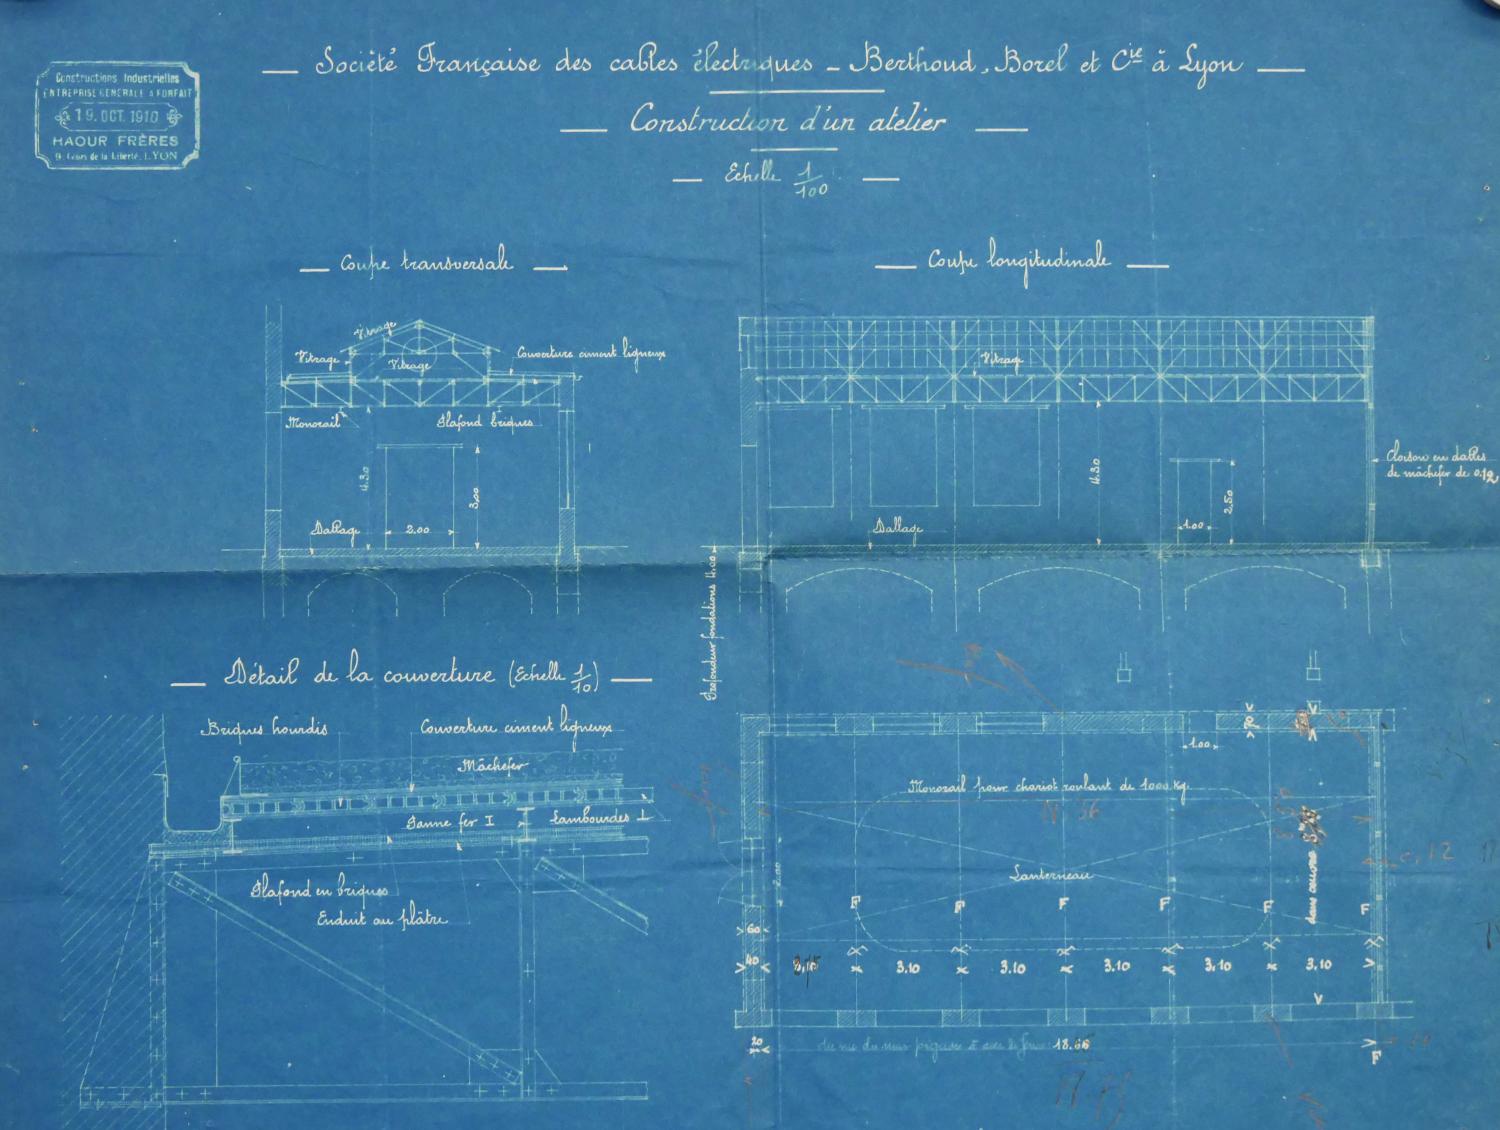 Constructions Industrielles
ENTREPRISE GENERALE A FORFAIT
19. OCT. 1910
HAOUR FRÈRES
9. Cours de la Liberté. LYON
Société Française des cables électriques - Berthoud, Borel et Cie à Lyon
Construction d'un atelier
Echelle 1/100
Coupe transversale
Vitrage
Vitrage
Vitrage
Couverture ciment ligneux
Monorail
Plafond briques
4.30
3.00
Dallage
2.00
Coupe longitudinale
Vitrage
Cloison en dalles
de mâchefer de 0.12
4.30
2.50
1.00
Dallage
Profondeur fondations 4.00
Détail de la couverture (Echelle 1/10)
Briques hourdis
Couverture ciment ligneux
Mâchefer
Panne fer I
Lambourdes ⊥
Plafond en briques
Enduit au plâtre
1.00
Monorail pour chariot roulant de 1000 Kg.
Lanterneau
dans oeuvre
2.00
F F F F F F
60
40
3.10 3.10 3.10 3.10 3.10
20
18.66
F